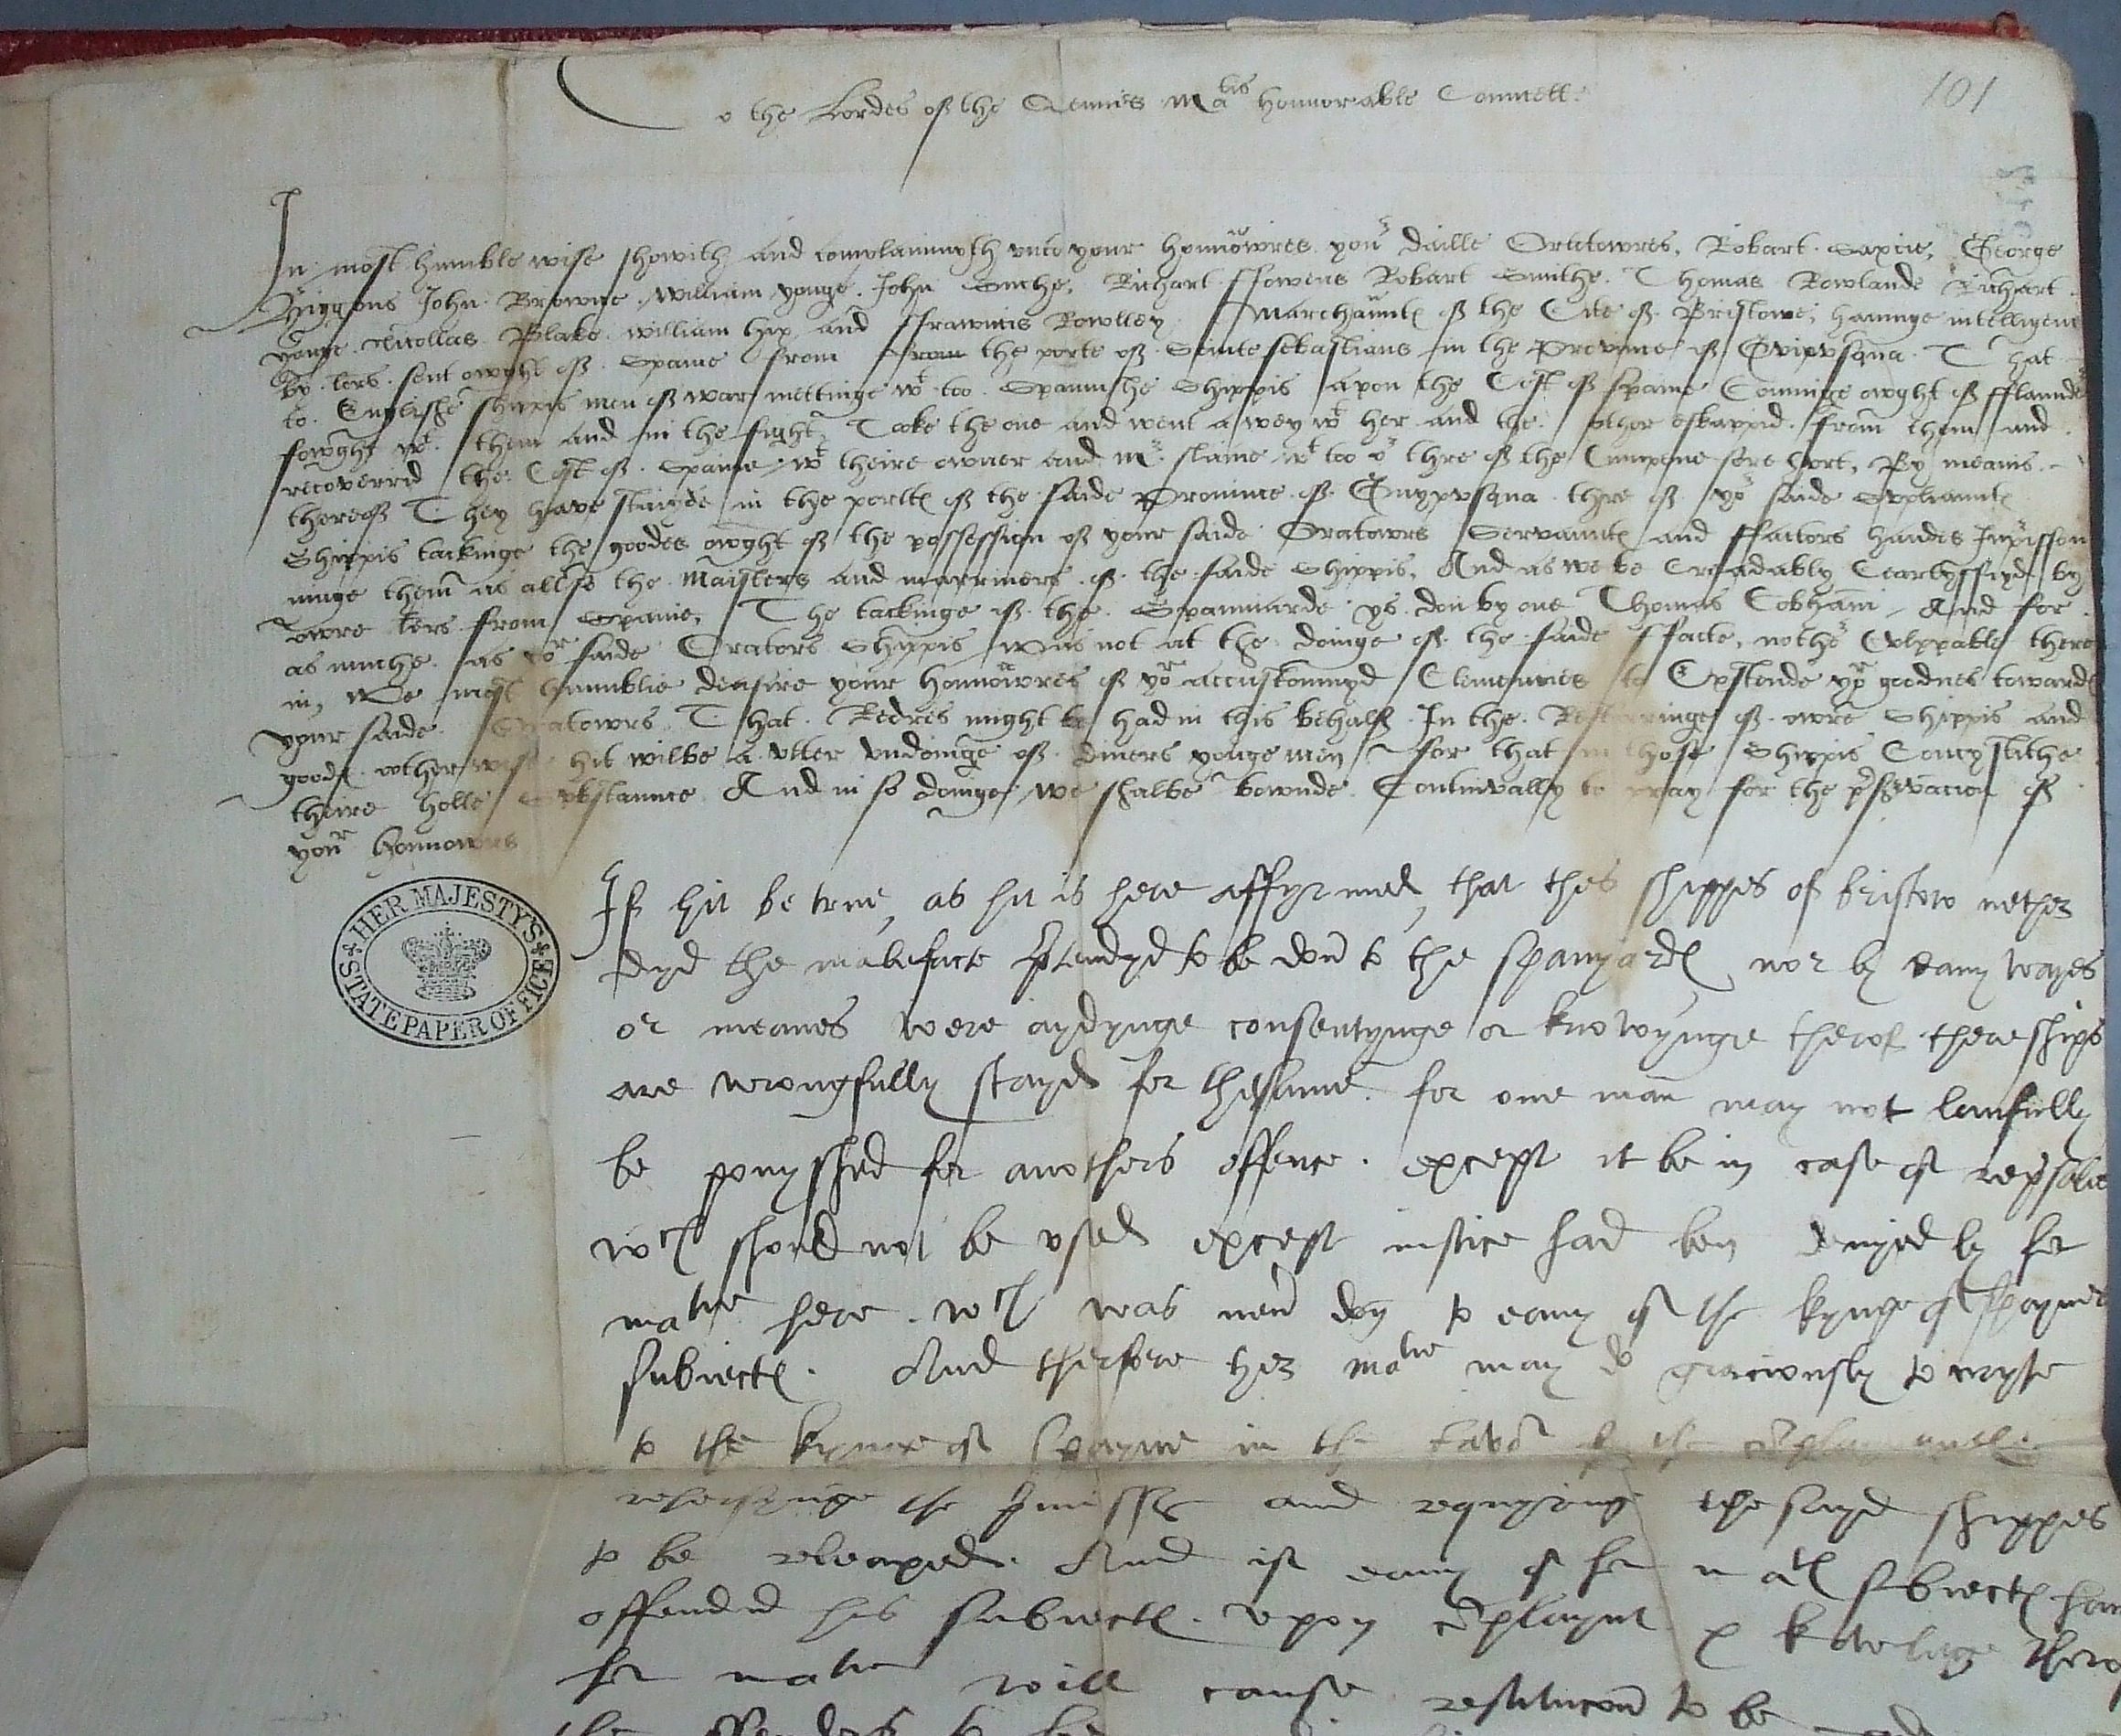 101
To the Lordes of the Quenes Matis honnorable Counsell.
In most humble wise showith and complainingth unto your honnowres your daille Oratowres, Robart Saxcie, George
Higgons John Browne William yonge John Suche, Richart ffowens Robart Smithe. Thomas Rowlande Richart
yonge Nicollas Blake william hix and ffrauncis Rowlley Marchaunts of the Cite of Bristowe, havinge intelligence
by lers sent owght of Spaine from from the porte of Seinte sebastians in the Province of Gvipvsqua That
to Englishe shippis men of war mettinge wt too Spannishe Shippis apon the Cost of Spaine Comminge owght of fflaunders
fowght wt them and in the fight Tooke the one and went a wey wt her and the other eskappid from them and
recoverrid the Cost of Spaine wt theire owner and mr slaine wt too or thre of the Cumpene sore hort, By meanis
thereof They have staiyde in the portes of the saide Province of Guypvsqua thre of yor saide Svpliaunts
Shippis tackinge the goodes owght of the possession of your saide Oratowrs Servaunts and ffactors handes Inprisson
ninge them as allso the Maisters and marriners of the saide Shippis, And as we be Creadably Ceartyffiyd by
owre lers from Spanie, The tackinge of the Spanniarde ys don by one Thomas Cobham And for
as muche as yor saide Orators Shippis was not at the doinge of the saide ffacte, nother Culppable there
in, We most humblie deasire your Honnowres of yor accustommyd Clemencies to Exstende yor goodnes towards
your saide Oratowrs That Redres might be had in this behalf In the Restorringe of owre Shippis and
goods otherwise hit wilbe a utter vndoinge of divers yonge men for that in those Shippis Concystithe
theire holle Substaunce And in so doinge we shalbe bownde Continvally to pray for the preservacion of
your honnowres
HER MAJESTY'S
STATE PAPER OFFICE
If hit be true, as hit is here affyrmed, that thes shippes of bristow nether
dyd the malefacte pretendyd to be don to the spanyards nor by eany wayes
or meanes were aydynge consentynge or knowynge therof there ships
are wrongfully stayed for thesame. for one man may not lawfully
be ponysshed for anothers offence. except it be in case of reprisalie
wch shold not be vsed except iustice had ben denyed by her
matie here. wch was never don to eany of the kynge of spaynes
subiects. And therfore her matie may do graciously to wryte
to the kynge of Spayne in the favor of the complaynants
rehersynge the premisses and requyring the sayd shippes
to be releaxed. And if eany of her mats subiects have
offended his subiects. vpon complaynt & knowlege therof
her matie will cause restitucion to be
the offenders to be